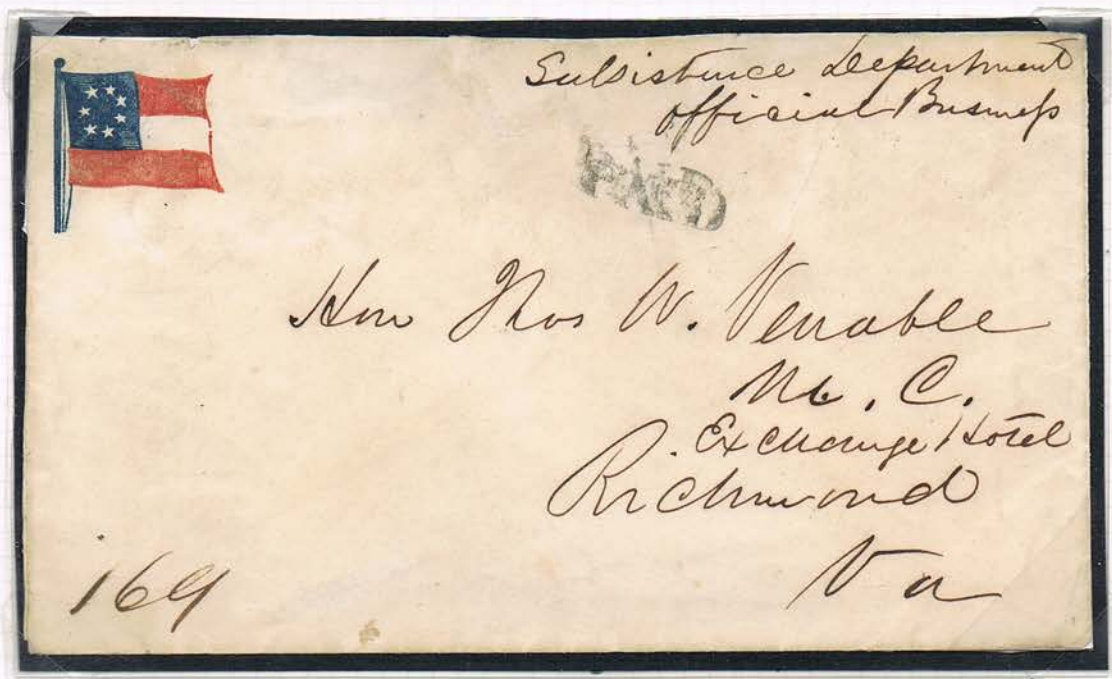 Subsistence Department
official Business
PAID
Hon Thos W. Venable
M. C.
Exchange Hotel
Richmond
Va
169